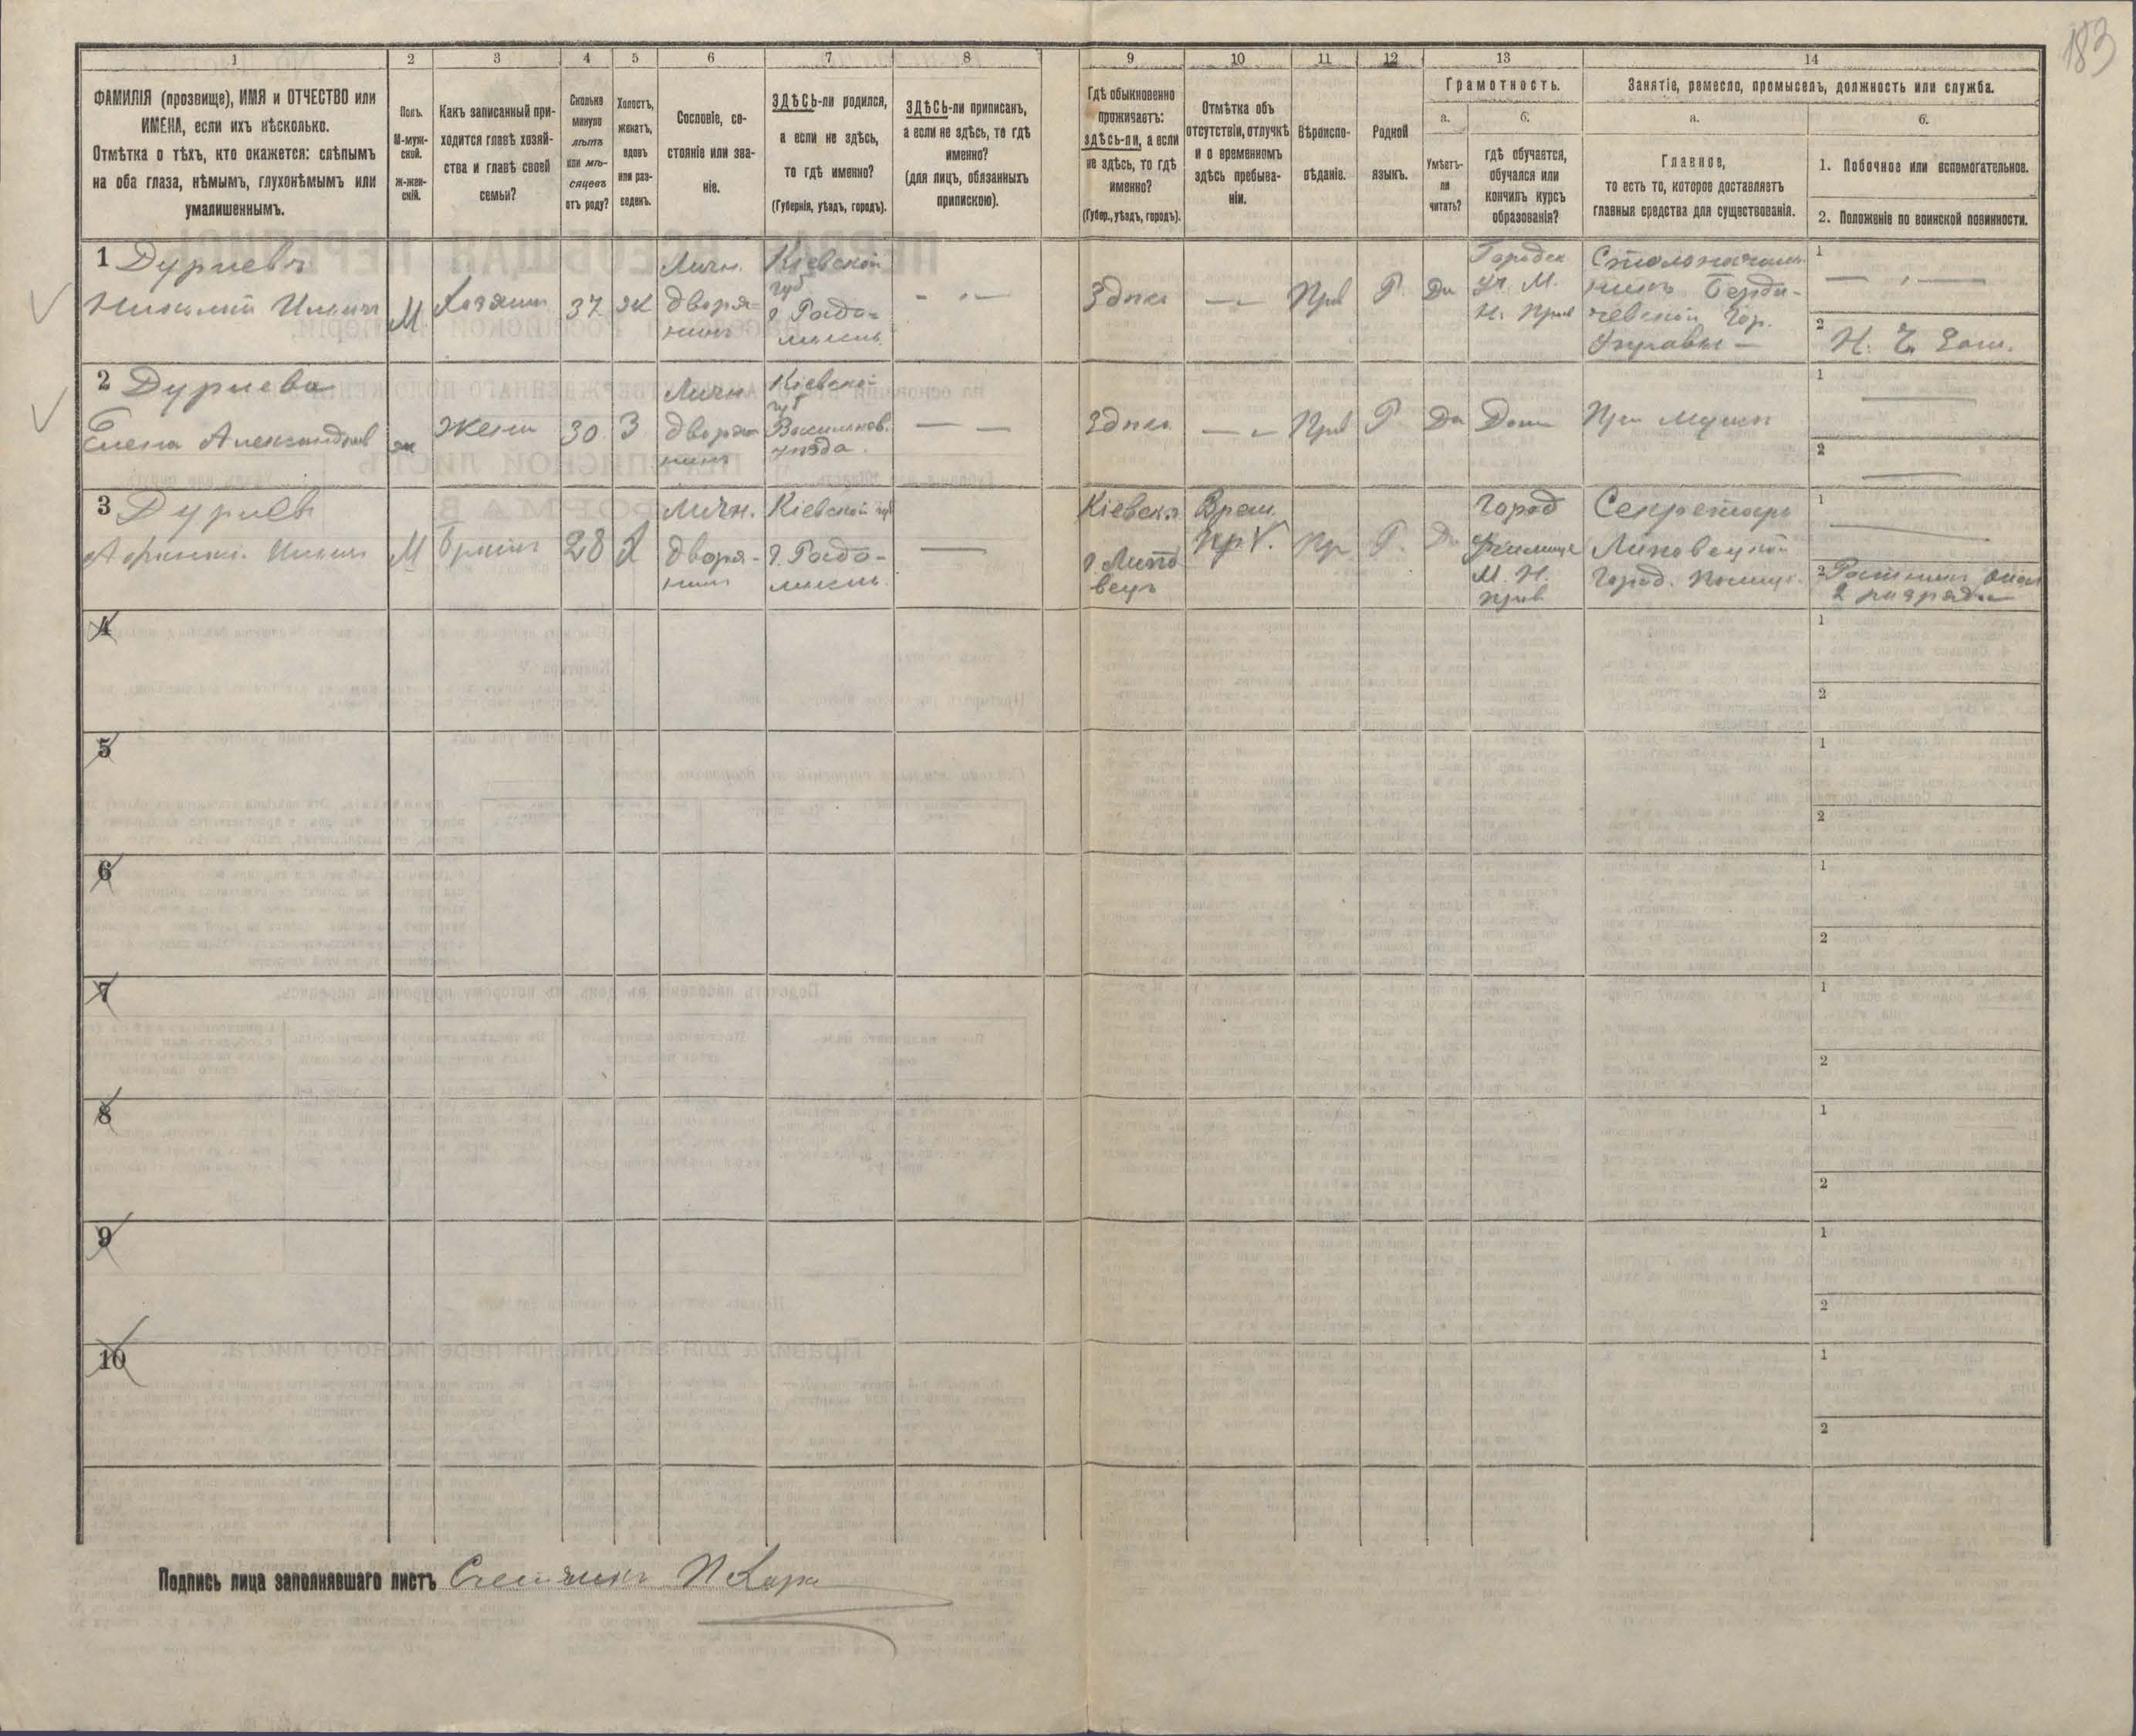 183
1 2 3 4 5 6 7 8 9 10 11 12 13 14
ФАМИЛІЯ (прозвище), ИМЯ и ОТЧЕСТВО или
ИМЕНА, если ихъ нѣсколько.
Отмѣтка о тѣхъ, кто окажется: слѣпымъ
на оба глаза, нѣмымъ, глухонѣмымъ или
умалишеннымъ.
Полъ.
М-муж-
ской.
Ж-жен-
скій.
Какъ записанный при-
ходится главѣ хозяй-
ства и главѣ своей
семьи?
Сколько
минуло
лѣтъ
или мѣ-
сяцевъ
отъ роду?
Холостъ,
женатъ,
вдовъ
или раз-
веденъ.
Сословіе, со-
стояніе или зва-
ніе.
ЗДѢСЬ-ли родился,
а если не здѣсь,
то гдѣ именно?
(Губернія, уѣздъ, городъ).
ЗДѢСЬ-ли приписанъ,
а если не здѣсь, то гдѣ
именно?
(для лицъ, обязанныхъ
припискою).
Гдѣ обыкновенно
проживаетъ:
здѣсь-ли, а если
не здѣсь, то гдѣ
именно?
(Губер., уѣздъ, городъ).
Отмѣтка объ
отсутствіи, отлучкѣ
и о временномъ
здѣсь пребыва-
ніи.
Вѣроиспо-
вѣданіе.
Родной
языкъ.
Грамотность.
а.
Умѣетъ-
ли
читать?
б.
гдѣ обучается,
обучался или
кончилъ курсъ
образованія?
Занятіе, ремесло, промыселъ, должность или служба.
а.
Главное,
то есть то, которое доставляетъ
главныя средства для существованія.
б.
1. Побочное или вспомогательное.
2. Положеніе по воинской повинности.
1
М
Хозяинъ
37
Ж
Личн.
дворя-
нинъ
Кіевской
губ
г. Радо-
мысль
Здѣсь
Прав
Р.
Да
Городск
Уч. М.
Н. Прос
Столоначаль-
никъ Берди-
чевской Гор.
Управы —
1
2
2
Елена Александров
ж
Жена
30
З
Личн
дворя-
нинъ
Кіевской
губ
Васильков.
уѣзда.
Здѣсь
Прав
Р.
Да
Дома
При мужѣ
1
2
3
М
Братъ
28
Х
Личн.
дворя-
нинъ
Кіевской губ
г. Радо-
мысль
Кіевск.
г. Липо
вецъ
Врем.
пр.
Пр
Р.
Да
Город
Училище
М. Н.
Секретарь
Липовецкой
Город. Полиц.
1
2 Ратникъ опол
2 разряда
4
1
2
5
1
2
6
1
2
7
1
2
8
1
2
9
1
2
10
1
2
Подпись лица заполнявшаго листъ